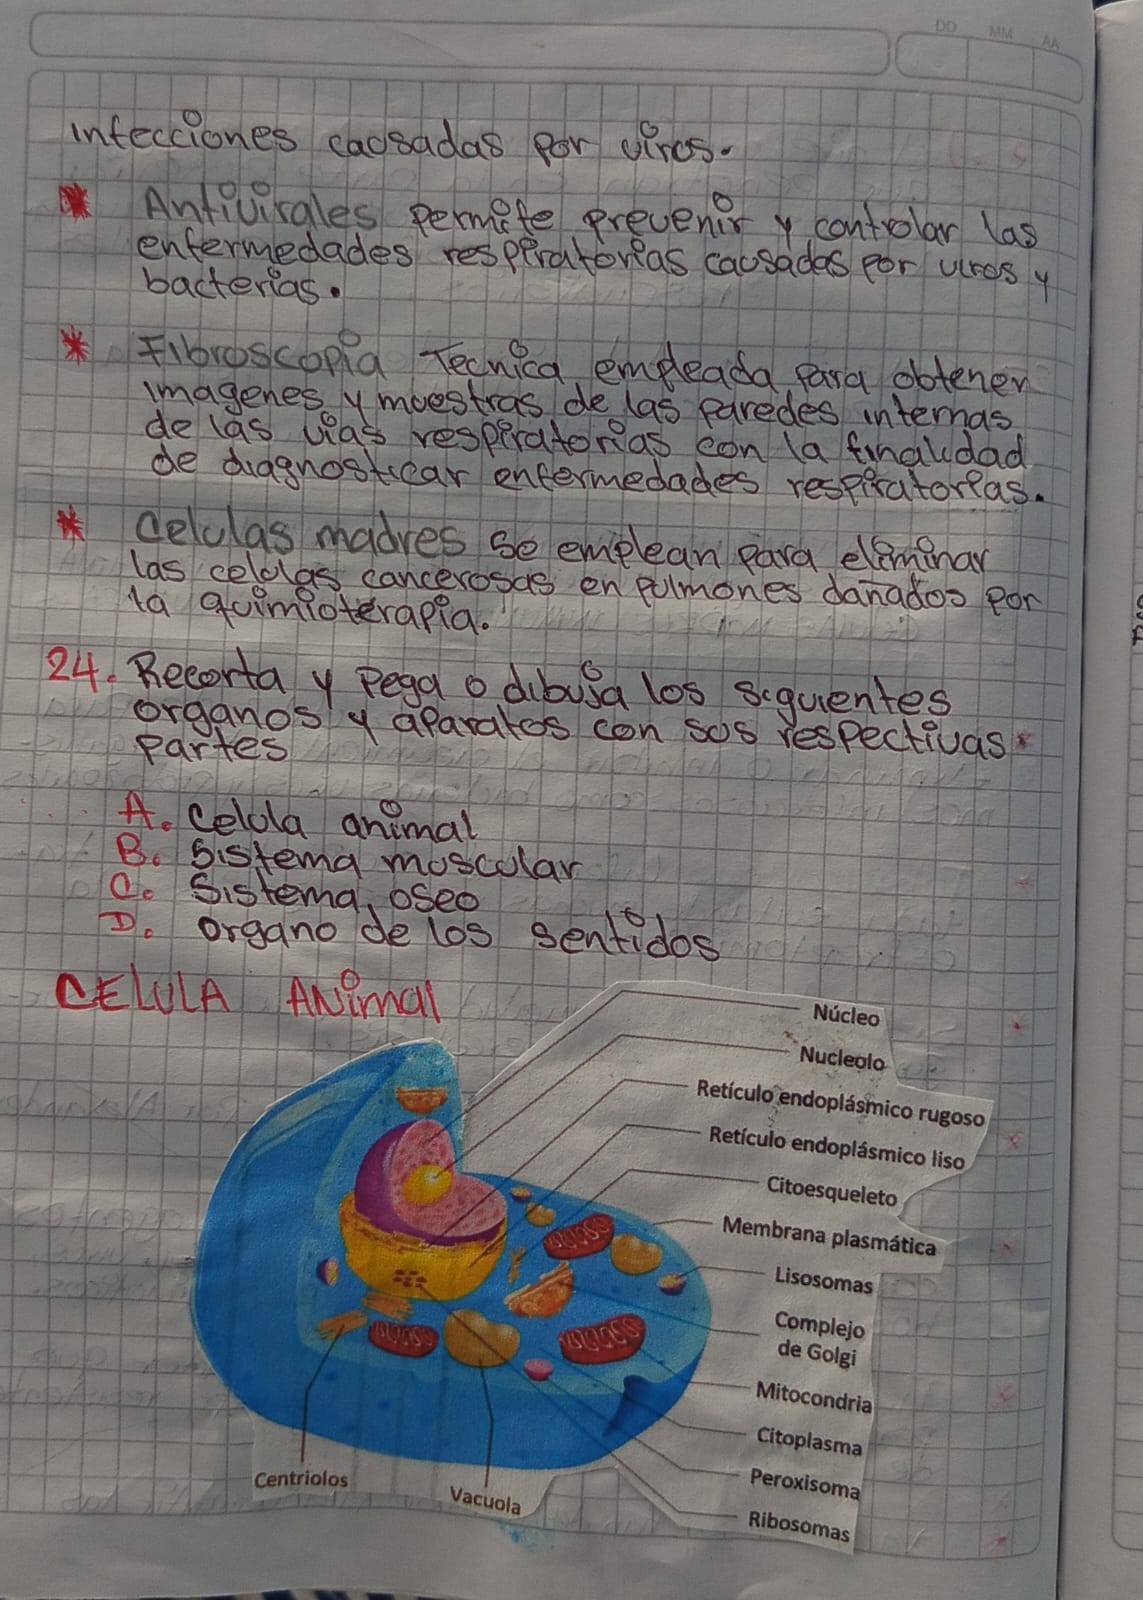 DD MM AA
infecciones causadas por virus.
* Antivirales permite prevenir y controlar las
enfermedades respiratorias causadas por virus y
bacterias.
* Fibroscopia Tecnica empleada para obtener
imagenes y muestras de las paredes internas
de las vias respiratorias con la finalidad
de diagnosticar enfermedades respiratorias.
* Celulas madres se emplean para eliminar
las celulas cancerosas en pulmones dañados por
la quimioterapia.
24. Recorta y pega o dibuja los siguientes
organos y aparatos con sus respectivas
partes
A. Celula animal
B. Sistema muscular
C. Sistema oseo
D. organo de los sentidos
CELULA ANimal
Núcleo
Nucleolo
Retículo endoplásmico rugoso
Retículo endoplásmico liso
Citoesqueleto
Membrana plasmática
Lisosomas
Complejo
de Golgi
Mitocondria
Citoplasma
Peroxisoma
Ribosomas
Centriolos
Vacuola